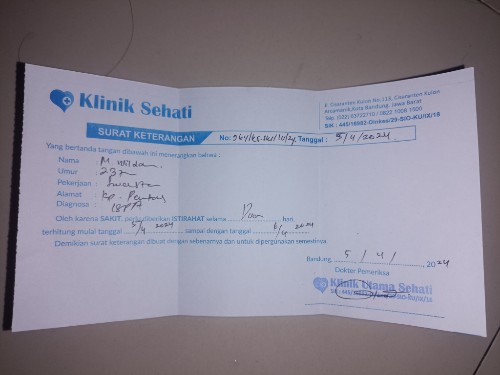 Klinik Sehati
Jl. Cisaranten Kulon No.113, Cisaranten Kulon
Arcamanik,Kota Bandung, Jawa Barat
SURAT KETERANGAN
No: Tanggal : 5/4/2024
Yang bertanda tangan dibawah ini menerangkan bahwa :
Nama : M. Wildan
Umur : 23
Pekerjaan : Swasta
Alamat : Kp.
Diagnosa : ISPA
Oleh karena SAKIT, perlu diberikan ISTIRAHAT selama Dua hari,
terhitung mulai tanggal 5/4 2024 sampai dengan tanggal 6/4 2024
Demikian surat keterangan dibuat dengan sebenarnya dan untuk dipergunakan semestinya.
Bandung, 5 / 4 / 2024
Dokter Pemeriksa
Klinik Utama Sehati